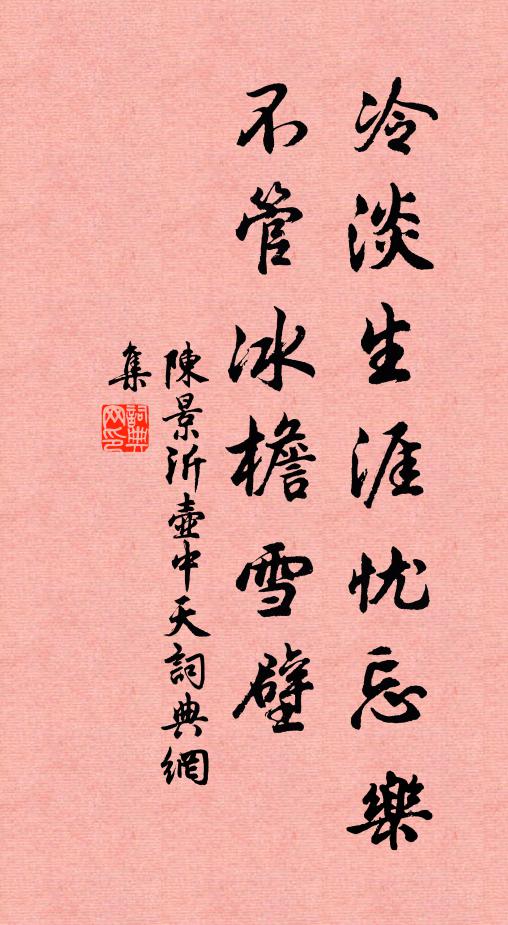 冷淡生涯忧忘樂
不管冰檐雪壁
陳景沂壺中天詞典網
集
詞典
网印